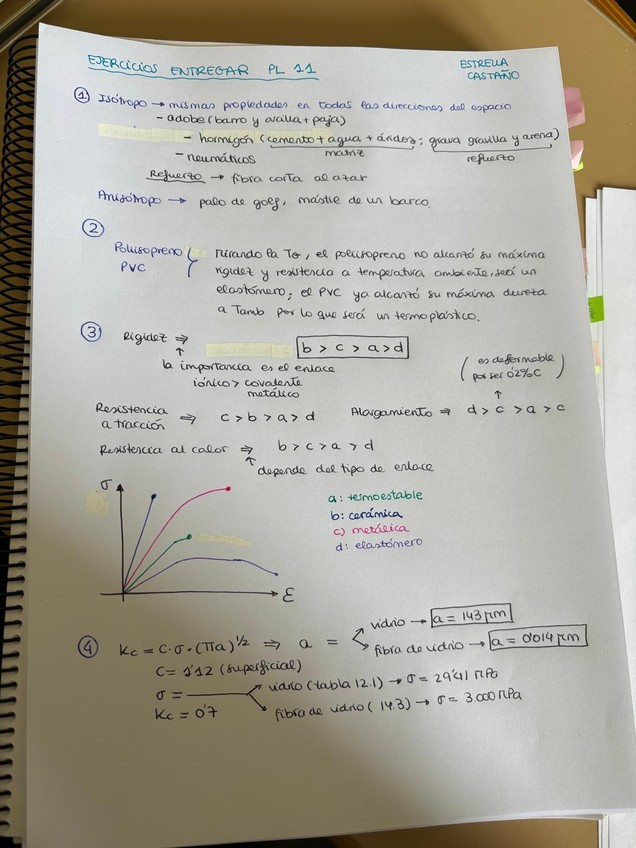 EJERCICIOS ENTREGAR PL 11
ESTRELLA
CASTAÑO
① Isótropo → mismas propiedades en todas las direcciones del espacio
- adobe (barro y arcilla + paja)
- hormigón (cemento + agua + áridos; grava gravilla y arena)
matriz refuerzo
- neumáticos
Refuerzo → fibra corta al azar
Anisótropo → palo de golf, mástil de un barco.
②
Poliisopreno
PVC
Mirando la TG, el poliisopreno no alcanzó su máxima
rigidez y resistencia a temperatura ambiente, será un
elastómero; el PVC ya alcanzó su máxima dureza
a Tamb por lo que será un termoplástico.
③ Rigidez ⇒ b > c > a > d
↑
la importancia es el enlace
iónico > covalente
metálico
(es deformable
por ser 0'2%C)
↑
Resistencia
a tracción ⇒ c > b > a > d
Alargamiento ⇒ d > c > a > c
Resistencia al calor ⇒ b > c > a > d
↑ depende del tipo de enlace
σ
ε
a: termoestable
b: cerámica
c) metálica
d: elastómero
④ Kc = C·σ·(πa)^1/2 ⇒ a =
vidrio → a = 143 μm
fibra de vidrio → a = 0'014 μm
C = 1'12 (superficial)
σ =
vidrio (tabla 12.1) → σ = 29'41 MPa
fibra de vidrio (14.3) → σ = 3.000 MPa
Kc = 0'7